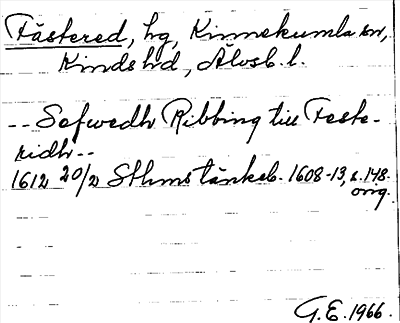 Fästered, hg, Kinnekumla sn,
Kinds hd, Älvsb. l.
-- Sefwedh Ribbing till Feste-
ridh --
1612 20/2 Sthms tänkeb. 1608-13, s. 148.
orig.
G.E. 1966.